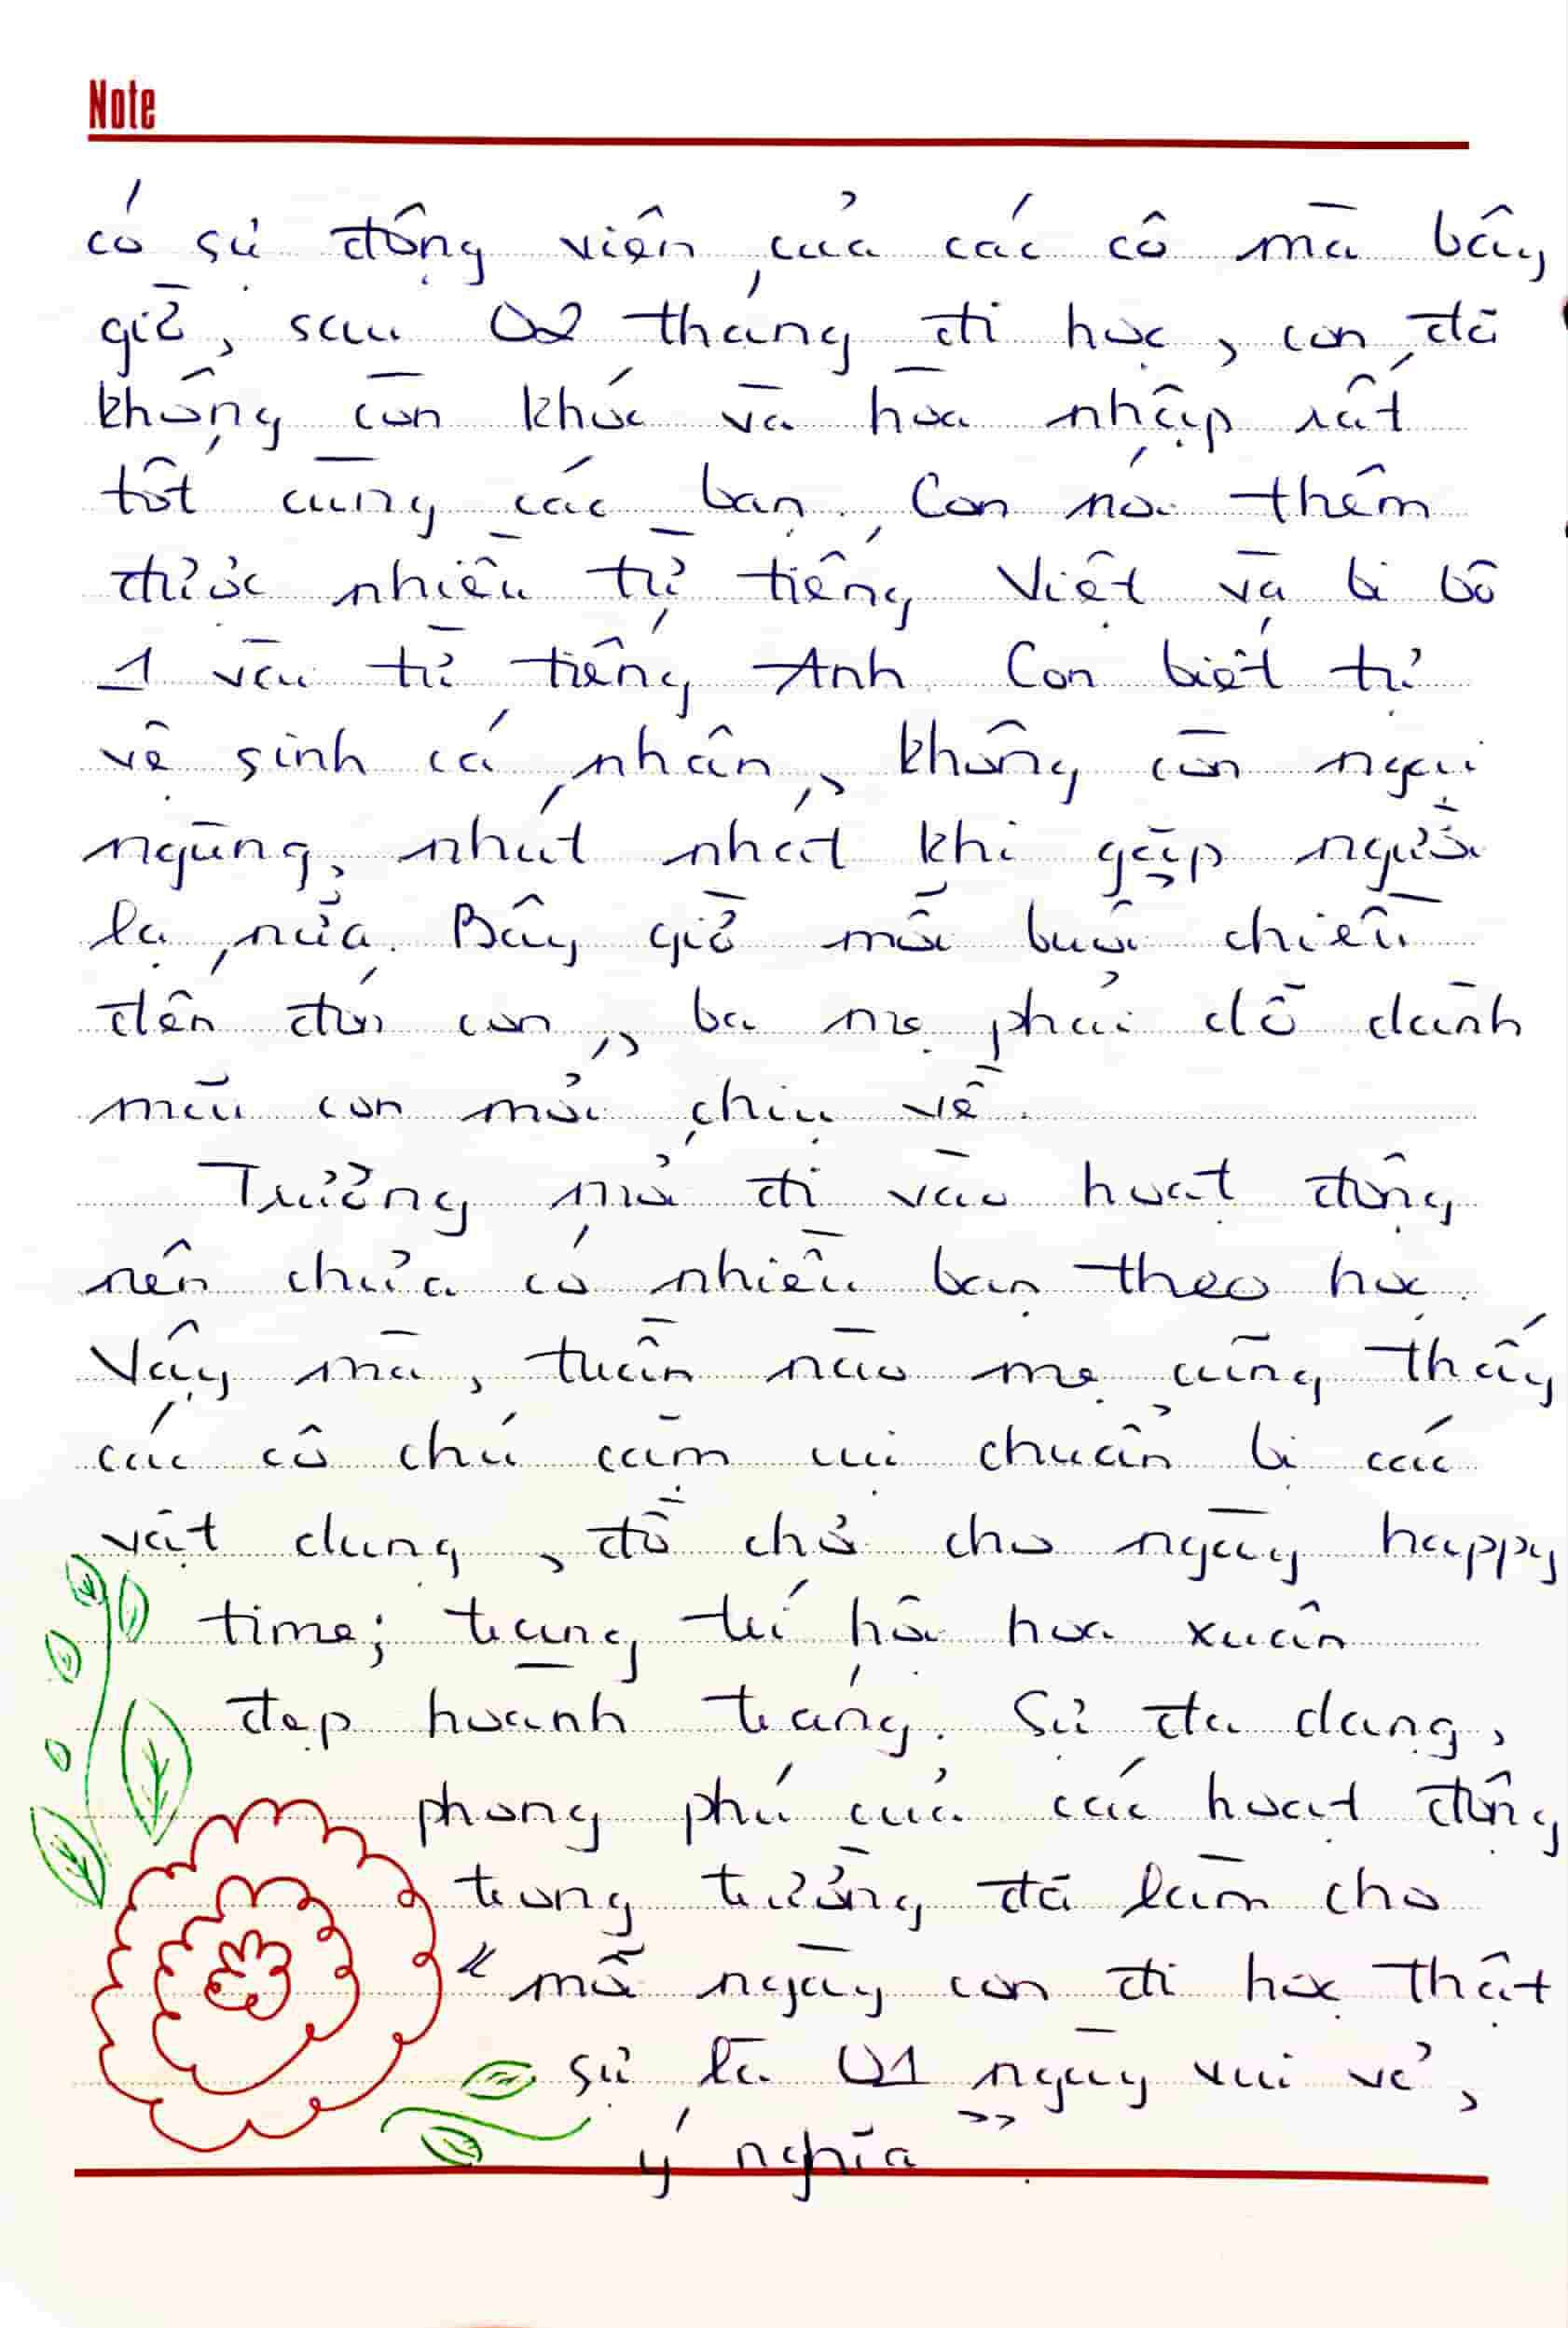 Note
có sự động viên của các cô mà bây
giờ, sau 02 tháng đi học, con đã
không còn khóc và hòa nhập rất
tốt cùng các bạn. Con nói thêm
được nhiều từ tiếng Việt và bi bô
1 vài từ tiếng Anh. Con biết tự
vệ sinh cá nhân, không còn ngại
ngùng, nhút nhát khi gặp người
lạ nữa. Bây giờ mỗi buổi chiều
đến đón con, ba mẹ phải dỗ dành
mãi con mới chịu về.
Trường mới đi vào hoạt động
nên chưa có nhiều bạn theo học.
Vậy mà, tuần nào mẹ cũng thấy
các cô chú cặm cụi chuẩn bị các
vật dụng, đồ chơi cho ngày happy
time; trang trí hội hoa xuân
đẹp hoành tráng. Sự đa dạng,
phong phú của các hoạt động
trong trường đã làm cho
"mỗi ngày con đi học thật
sự là 01 ngày vui vẻ,
ý nghĩa".